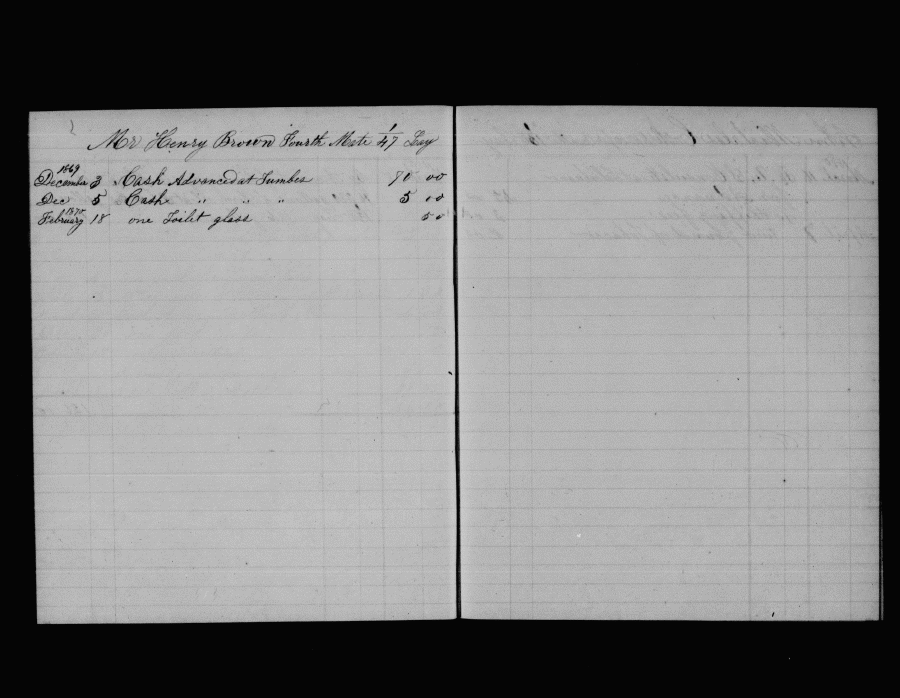 Mr Henry Brown Fourth Mate 1/47 Lay
1869
December 3 Cash Advanced at Tumbes 80 00
Dec 5 Cash " " " 5 00
1870
February 18 one Toilet glass 50